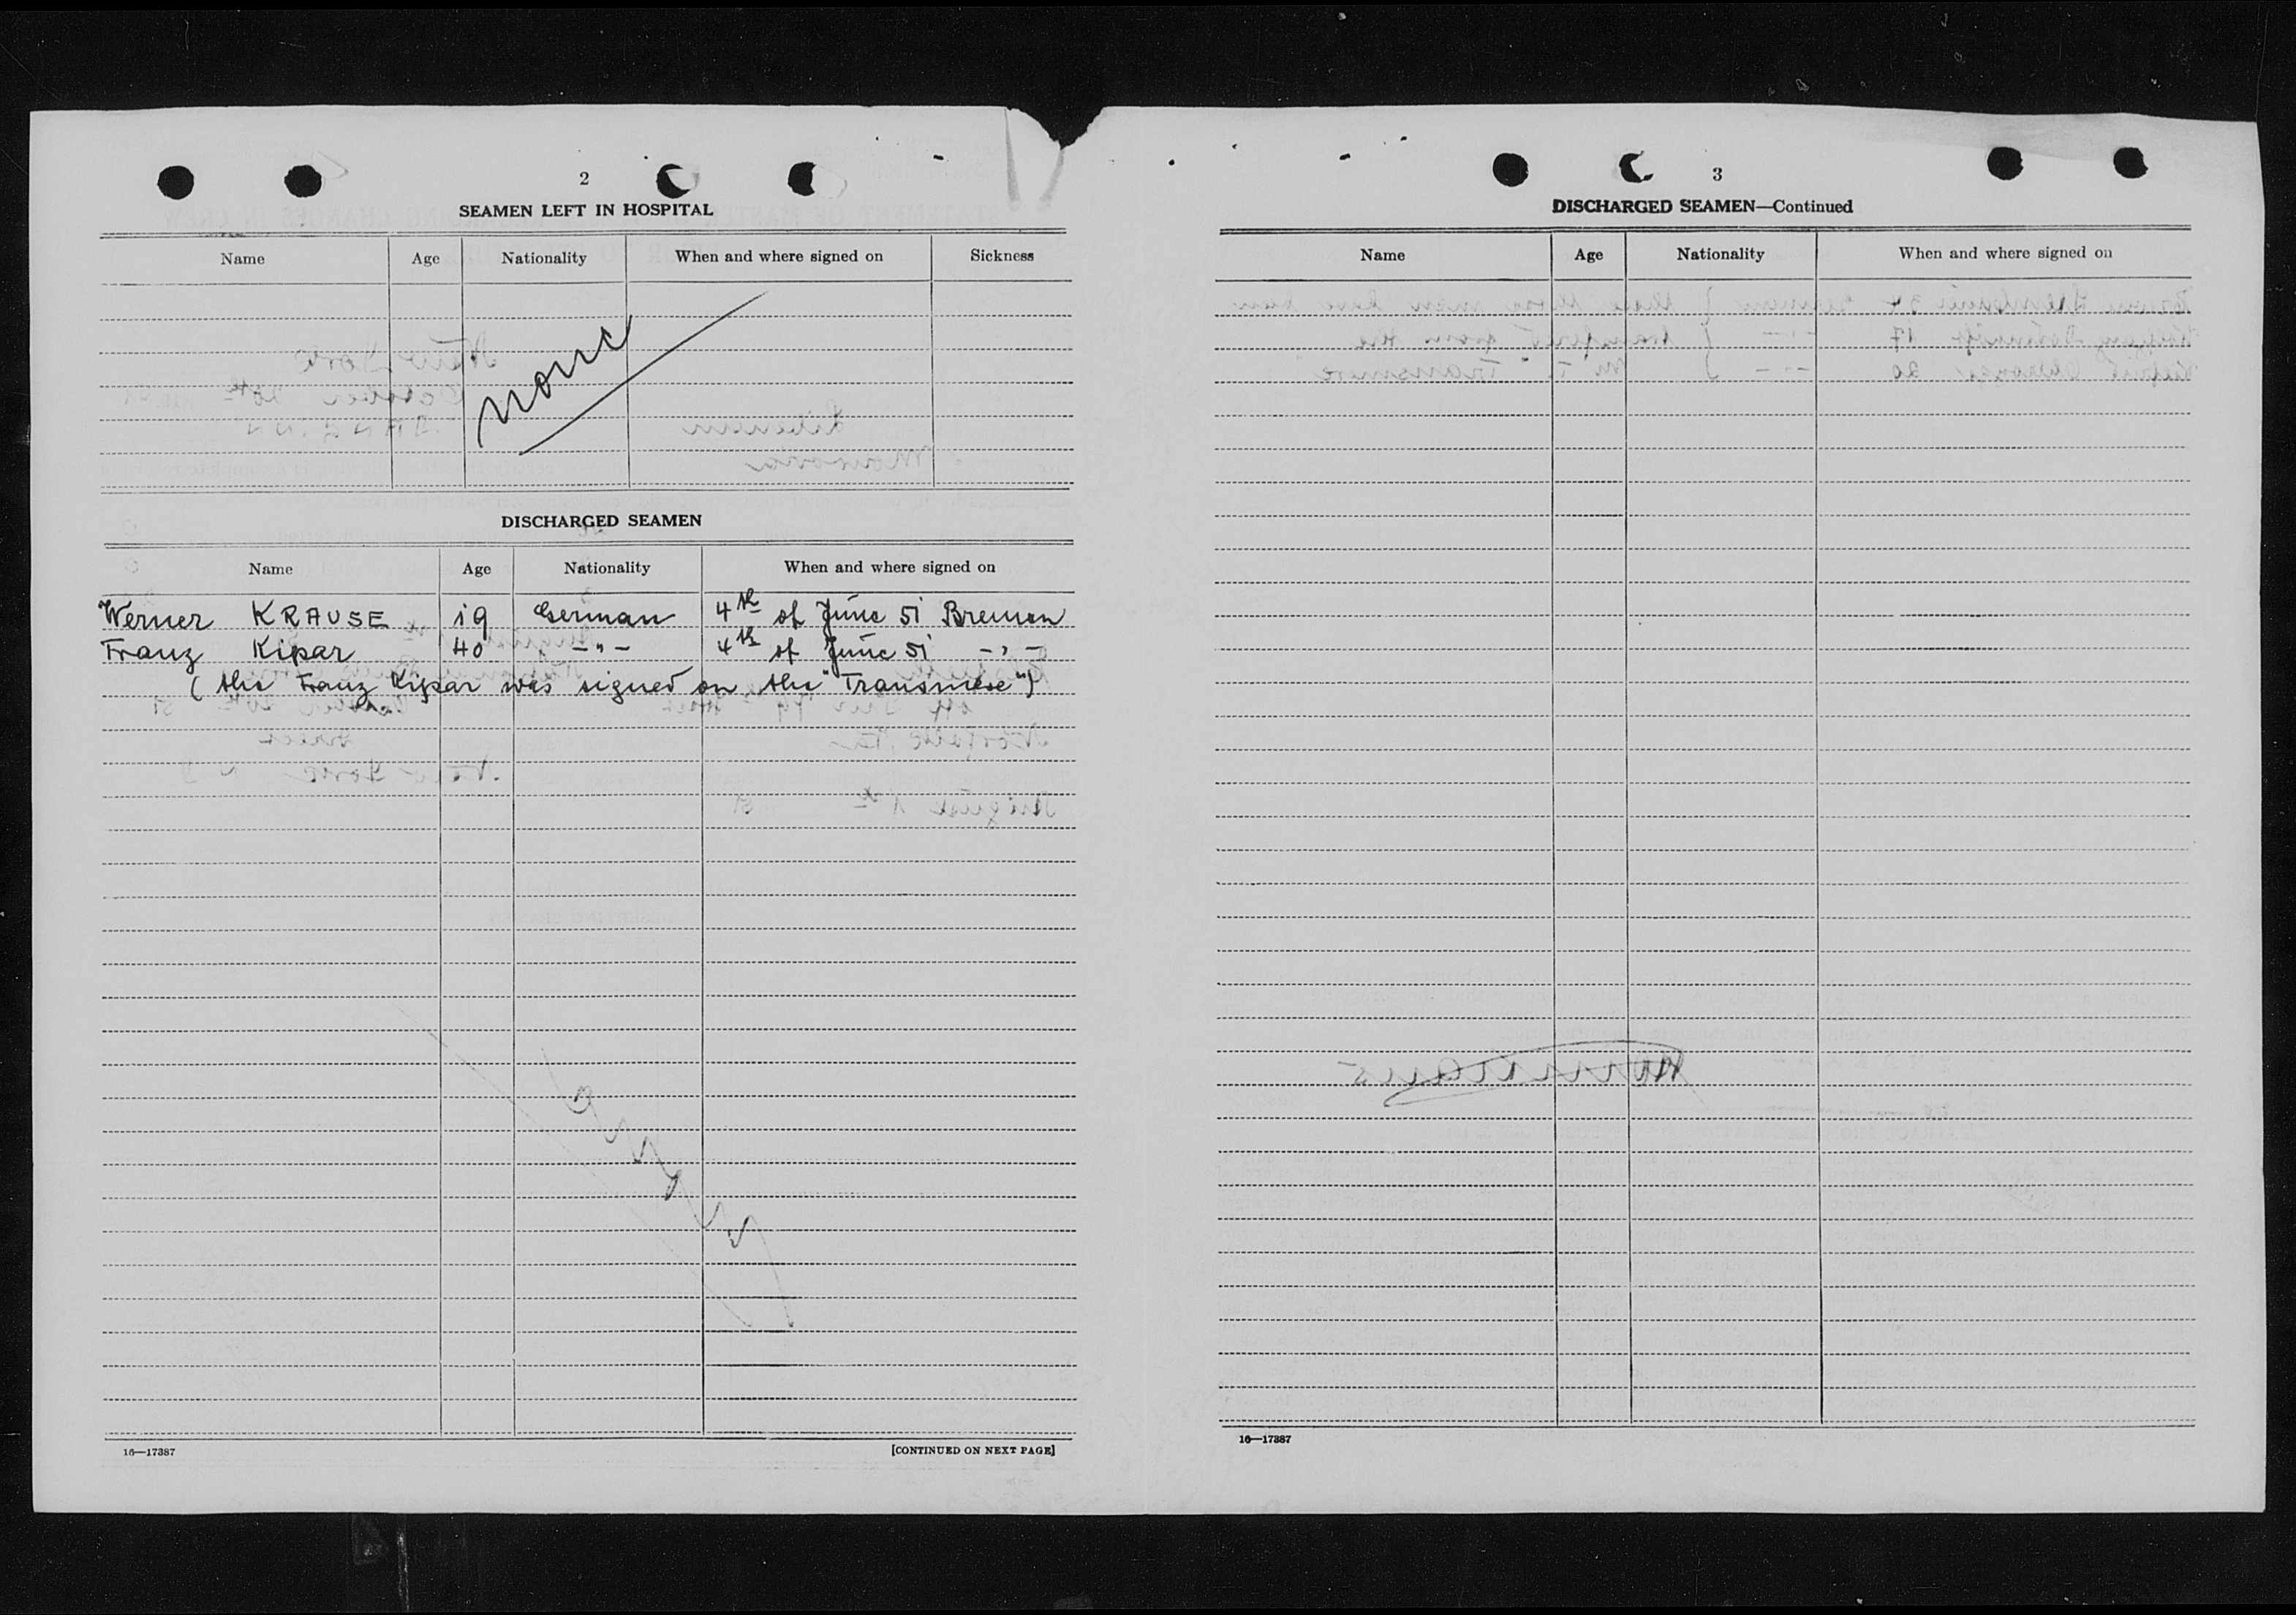 2
SEAMEN LEFT IN HOSPITAL
Name Age Nationality When and where signed on Sickness
none
DISCHARGED SEAMEN
Name Age Nationality When and where signed on
Werner KRAUSE 19 German 4th of June 51 Bremen
Franz Kipar 40 -"- 4th of June 51 -"-
(the Franz Kipar was signed on the "Transmere")
16—17387 [CONTINUED ON NEXT PAGE]
3
DISCHARGED SEAMEN—Continued
Name Age Nationality When and where signed on
16—17387